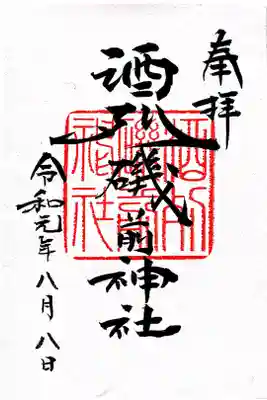 奉拝
酒列磯前神社
令和元年八月八日